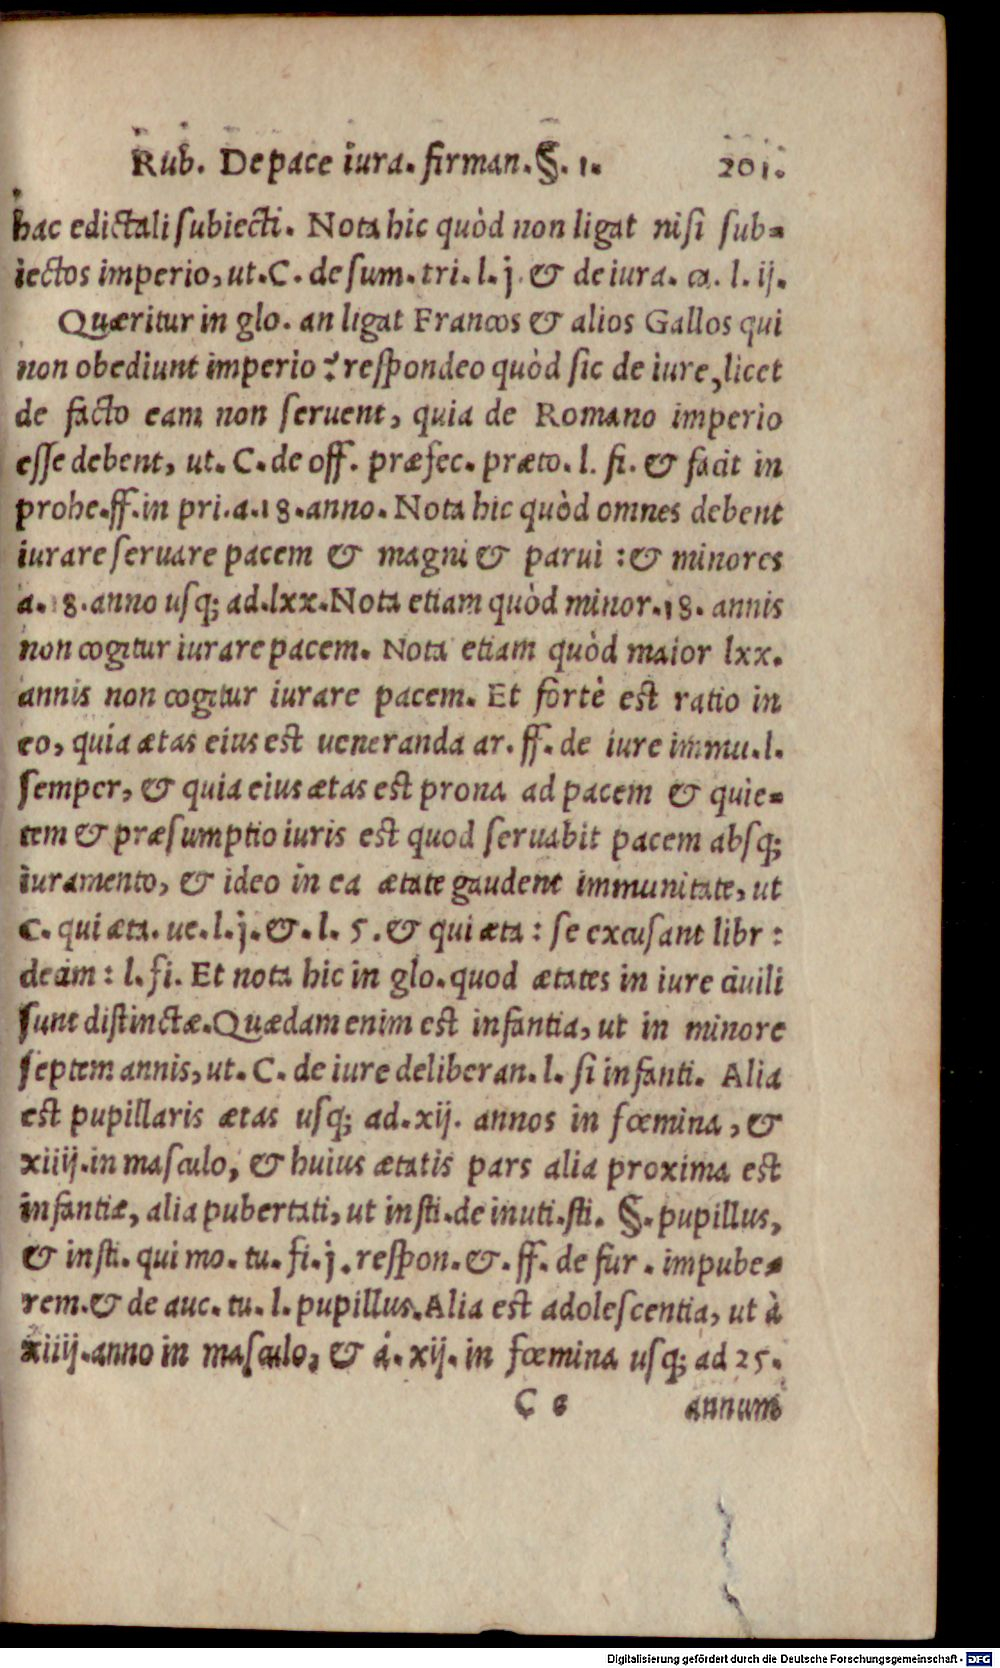 Rub. De pace iura. firman. §. 1. 201.
hac edictali subiecti. Nota hic quòd non ligat nisi sub=
iectos imperio, ut. C. de sum. tri. l. j. & de iura. ca. l. ij.
Quæritur in glo. an ligat Francos & alios Gallos qui
non obediunt imperio? respondeo quòd sic de iure, licet
de facto eam non seruent, quia de Romano imperio
esse debent, ut. C. de off. præfec. præto. l. fi. & facit in
prohe. ff. in pri. a. 18. anno. Nota hic quòd omnes debent
iurare seruare pacem & magni & parui : & minores
a. 18. anno usq; ad. lxx. Nota etiam quòd minor. 18. annis
non cogitur iurare pacem. Nota etiam quòd maior lxx.
annis non cogitur iurare pacem. Et fortè est ratio in
eo, quia ætas eius est ueneranda ar. ff. de iure immu. l.
semper, & quia eius ætas est prona ad pacem & quie=
tem & præsumptio iuris est quod seruabit pacem absq;
iuramento, & ideo in ea ætate gaudent immunitate, ut
C. qui æta. ue. l. j. &. l. 5. & qui æta : se excusant libr :
de am : l. fi. Et nota hic in glo. quod ætates in iure ciuili
sunt distinctæ. Quædam enim est infantia, ut in minore
septem annis, ut. C. de iure deliberan. l. si infanti. Alia
est pupillaris ætas usq; ad. xij. annos in fœmina, &
xiiij. in masculo, & huius ætatis pars alia proxima est
infantiæ, alia pubertati, ut insti. de inuti. sti. §. pupillus,
& insti. qui mo. tu. fi. j. respon. &. ff. de fur. impube=
rem. & de auc. tu. l. pupillus. Alia est adolescentia, ut à
xiiij. anno in masculo, & á. xij. in fœmina usq; ad 25.
annum
Digitalisierung gefördert durch die Deutsche Forschungsgemeinschaft - DFG